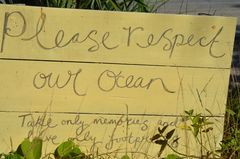 Please respect
our Ocean
Take only memories and
leave only footprints